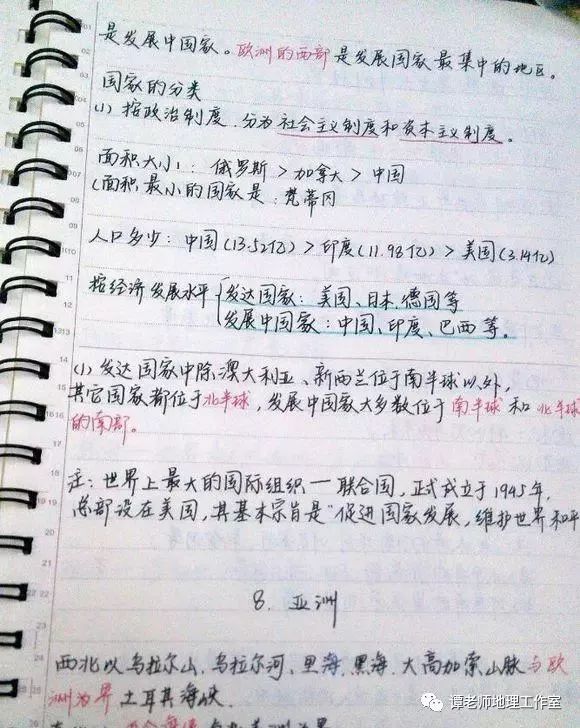 是发展中国家。欧洲的西部是发展国家最集中的地区。
国家的分类
(1) 按政治制度.分为社会主义制度和资本主义制度。
面积大小: 俄罗斯>加拿大>中国
(面积最小的国家是:梵蒂冈
人口多少: 中国(13.52亿)>印度(11.98亿)>美国(3.14亿)
按经济发展水平{发达国家: 美国、日本、德国等
发展中国家: 中国、印度、巴西等。
(1) 发达国家中除澳大利亚、新西兰位于南半球以外,
其它国家都位于北半球,发展中国家大多数位于南半球和北半球
的南部。
注: 世界上最大的国际组织一联合国,正式成立于1945年,
总部设在美国,其基本宗旨是"促进国家发展,维护世界和平
8. 亚洲
西北以乌拉尔山、乌拉尔河、里海、黑海、大高加索山脉与欧
洲为界 土耳其海峡.
谭老师地理工作室